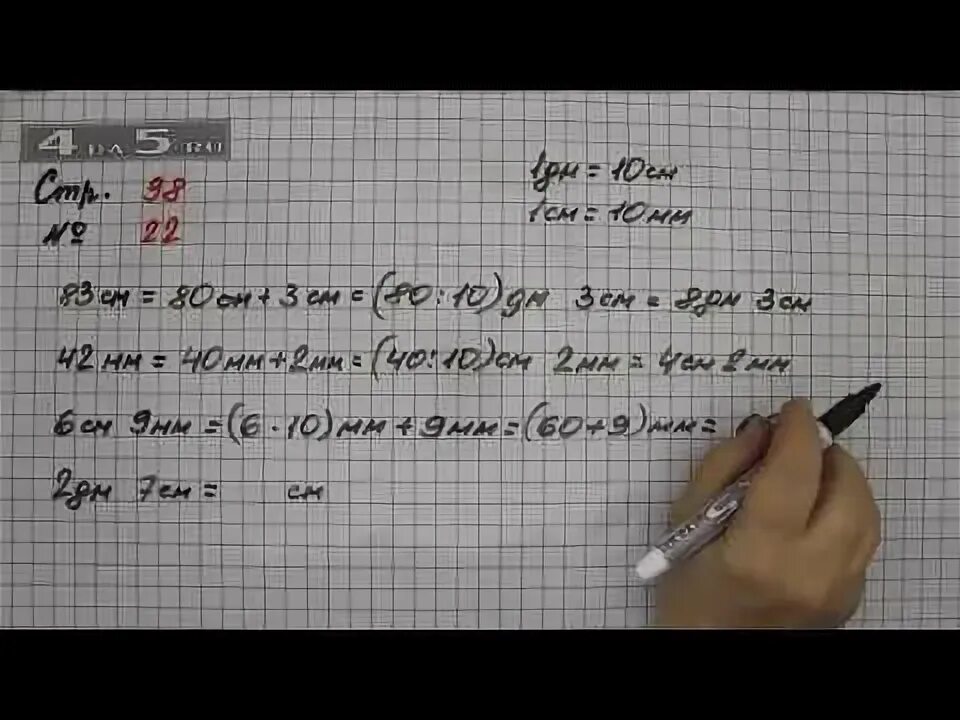 4 на 5
Стр. 98
№ 22
1дм = 10см
1см = 10мм
83см = 80см + 3см = (80:10)дм 3см = 8дм 3см
42мм = 40мм + 2мм = (40:10)см 2мм = 4см 2мм
6см 9мм = (6·10)мм + 9мм = (60+9)мм =
2дм 7см = см